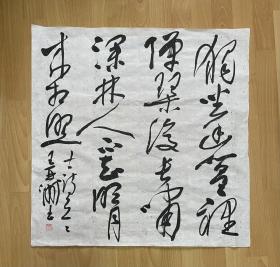 獨坐幽篁裡
彈琴復長嘯
深林人不知明月
來相照